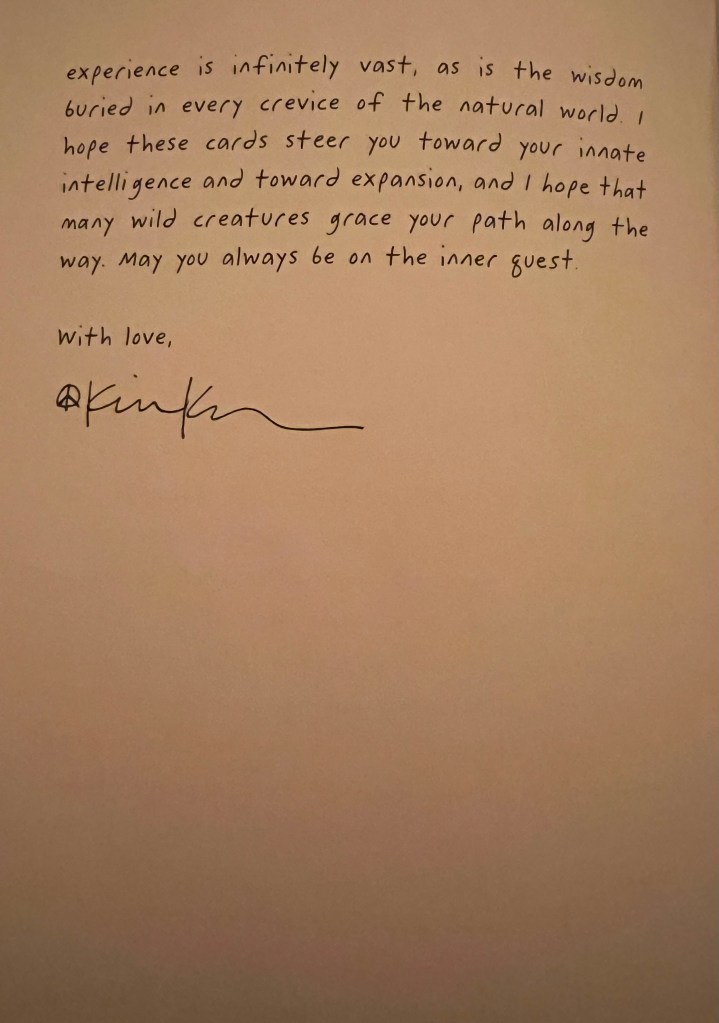 experience is infinitely vast, as is the wisdom
buried in every crevice of the natural world. I
hope these cards steer you toward your innate
intelligence and toward expansion, and I hope that
many wild creatures grace your path along the
way. May you always be on the inner quest.
With love,
Kim Kr